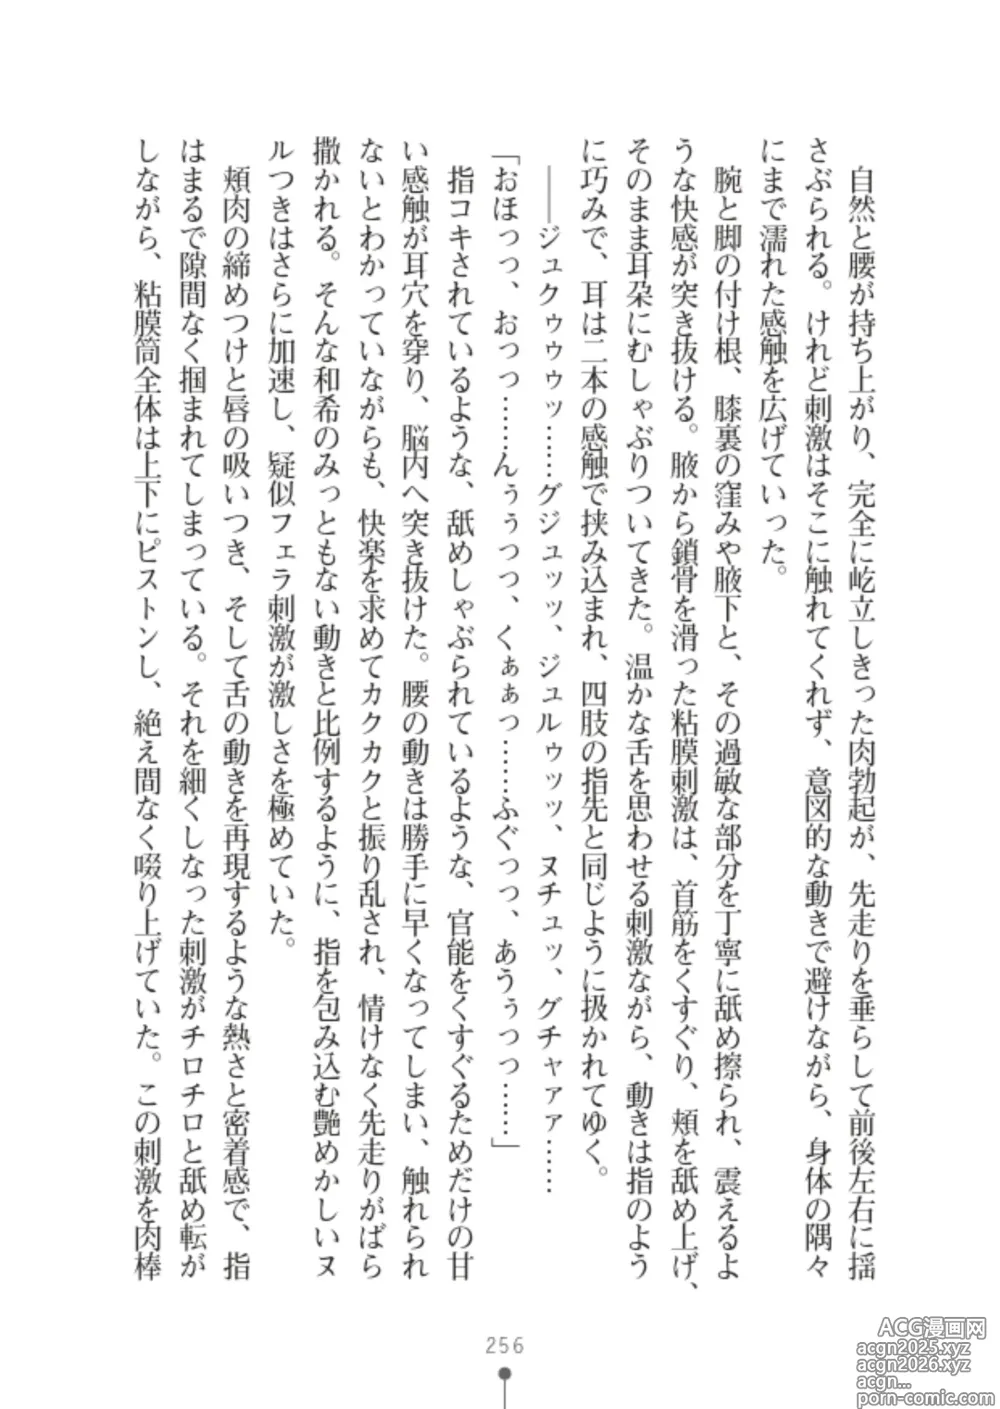 自然と腰が持ち上がり、完全に屹立しきった肉勃起が、先走りを垂らして前後左右に揺
さぶられる。けれど刺激はそこに触れてくれず、意図的な動きで避けながら、身体の隅々
にまで濡れた感触を広げていった。
腕と脚の付け根、膝裏の窪みや腋下と、その過敏な部分を丁寧に舐め擦られ、震えるよ
うな快感が突き抜ける。腋から鎖骨を滑った粘膜刺激は、首筋をくすぐり、頬を舐め上げ、
そのまま耳朶にむしゃぶりついてきた。温かな舌を思わせる刺激ながら、動きは指のよう
に巧みで、耳は二本の感触で挟み込まれ、四肢の指先と同じように扱かれてゆく。
――ジュクゥゥゥッ……グジュッッ、ジュルゥッッ、ヌチュッ、グチャァァ……
「おほっっ、おっっ……んぅぅっっ、くぁぁっ……ふぐっっ、あうぅっっ……」
指コキされているような、舐めしゃぶられているような、官能をくすぐるためだけの甘
い感触が耳穴を穿り、脳内へ突き抜けた。腰の動きは勝手に早くなってしまい、触れられ
ないとわかっていながらも、快楽を求めてカクカクと振り乱され、情けなく先走りがばら
撒かれる。そんな和希のみっともない動きと比例するように、指を包み込む艶めかしいヌ
ルつきはさらに加速し、疑似フェラ刺激が激しさを極めていた。
頬肉の締めつけと唇の吸いつき、そして舌の動きを再現するような熱さと密着感で、指
はまるで隙間なく掴まれてしまっている。それを細くしなった刺激がチロチロと舐め転が
しながら、粘膜筒全体は上下にピストンし、絶え間なく啜り上げていた。この刺激を肉棒
256
ACG漫画网
acgn2025.xyz
acgn2026.xyz
acgn...
porn-comic.com